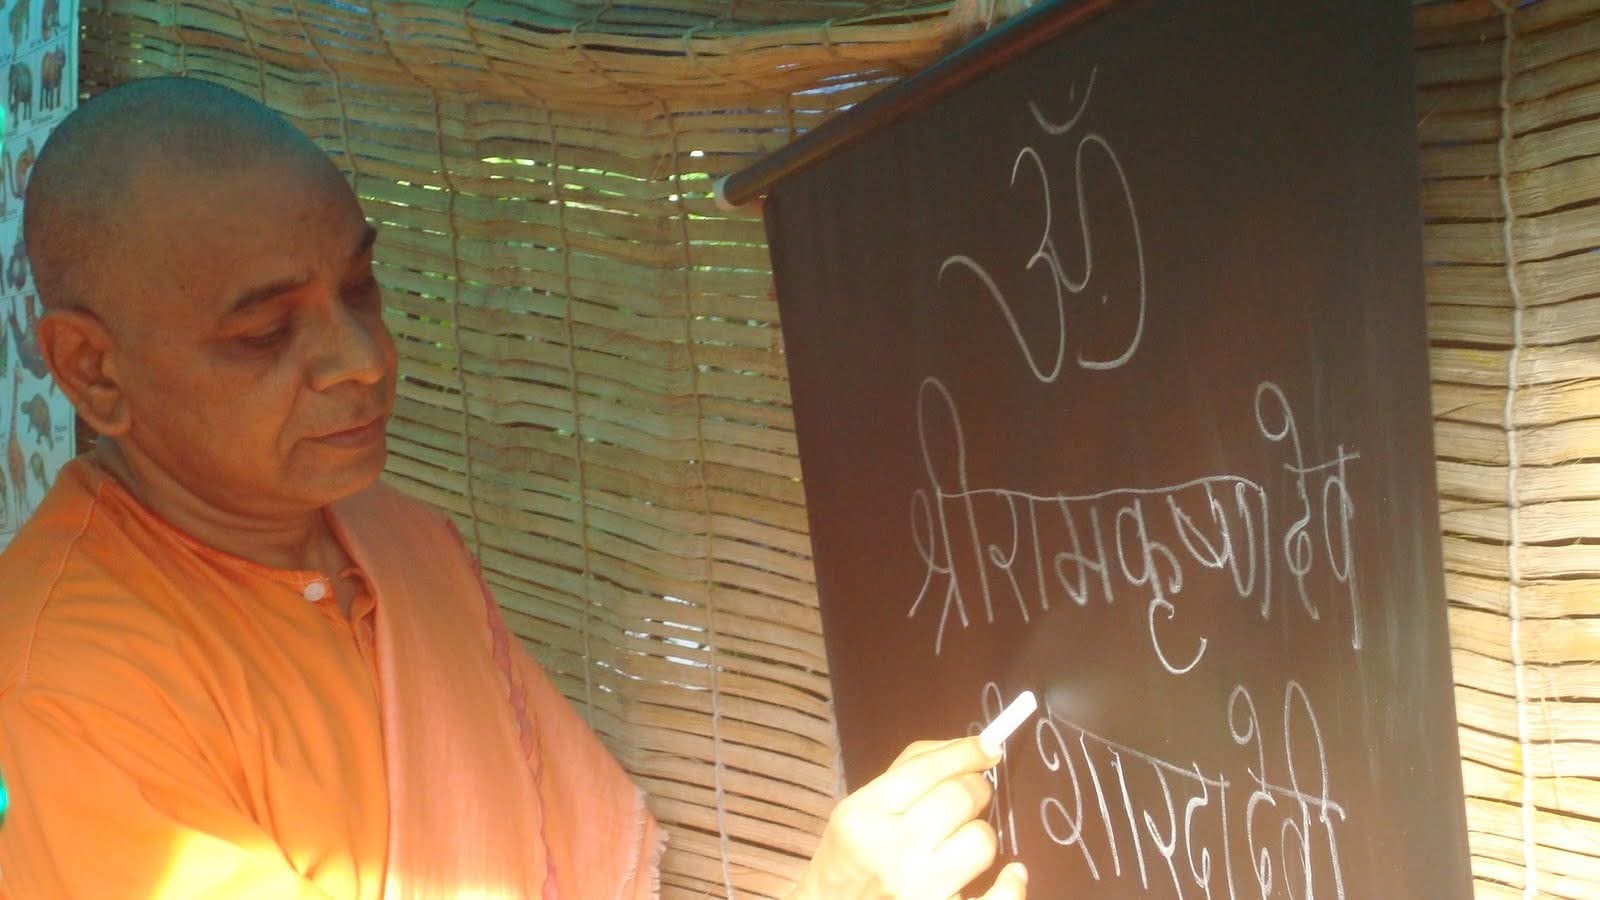 ॐ
श्रीरामकृष्णदेव
श्रीशारदादेवी